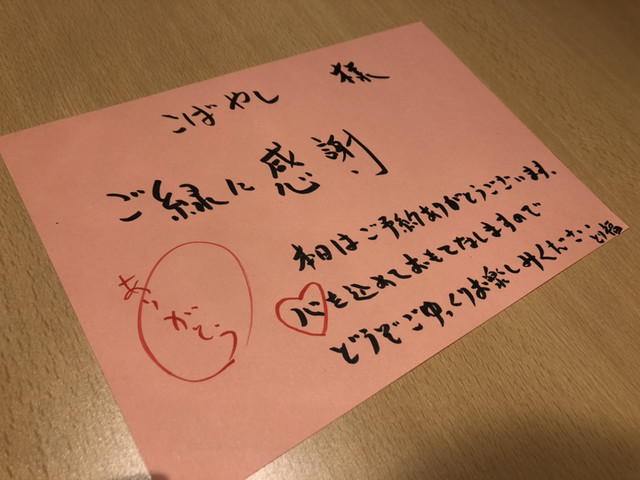 こばやし 様
ご縁に感謝
本日はご予約ありがとうございます。
心を込めておもてなしますので
どうぞごゆっくりお楽しみください
とり福
ありがとう